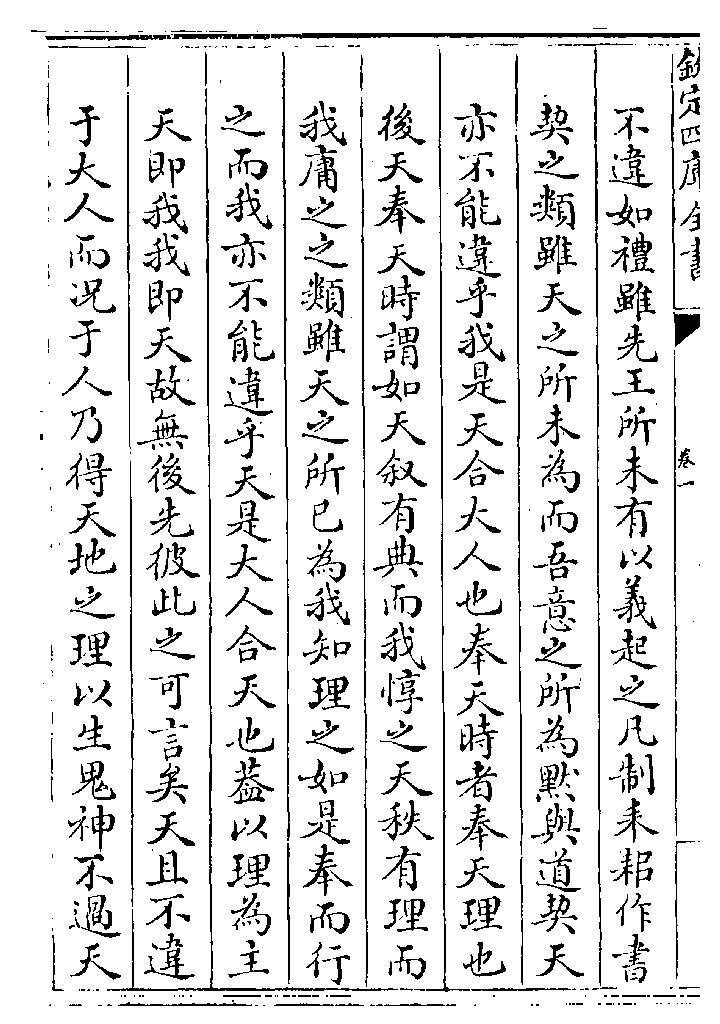 欽定四庫全書
卷一
不違如禮雖先王所未有以義起之凡制耒耜作書
契之類雖天之所未為而吾意之所為默與道契天
亦不能違乎我是天合大人也奉天時者奉天理也
後天奉天時謂如天叙有典而我惇之天秩有理而
我庸之之類雖天之所已為我知理之如是奉而行
之而我亦不能違乎天是大人合天也葢以理為主
天即我我即天故無後先彼此之可言矣天且不違
于大人而况于人乃得天地之理以生鬼神不過天